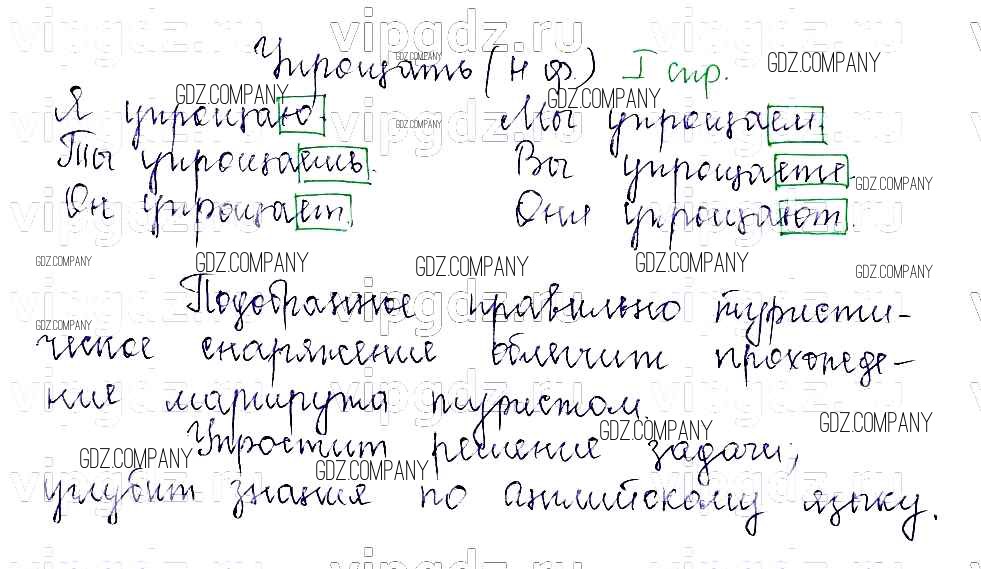 Упрощать (н ф) I спр.
Я упрощаю. Мы упрощаем.
Ты упрощаешь. Вы упрощаете.
Он упрощает. Они упрощают.
Подобранное правильно туристи-
ческое снаряжение облегчит прохожде-
ние маршрута туристом.
Упростит решение задачи;
углубит знания по английскому языку.
vipgdz.ru
GDZ.COMPANY